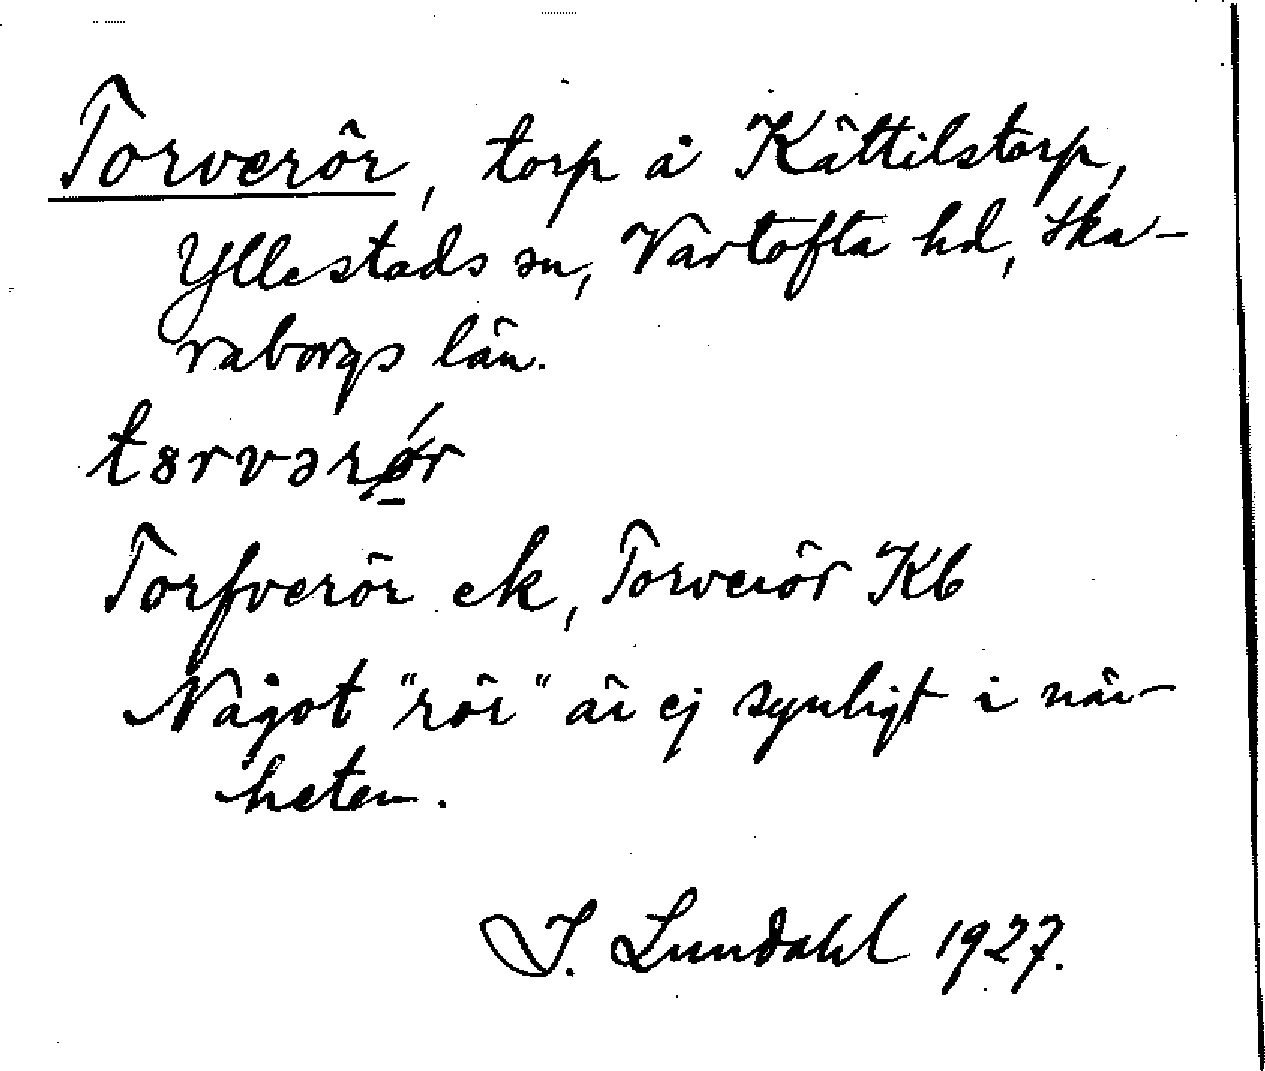 Torverör, torp å Kättilstorp,
Yllestads sn, Vartofta hd, Ska-
raborgs län.
Torfverör ek, Torverör Kb
Något "rör" är ej synligt i när-
heten.
I. Lundahl 1927.